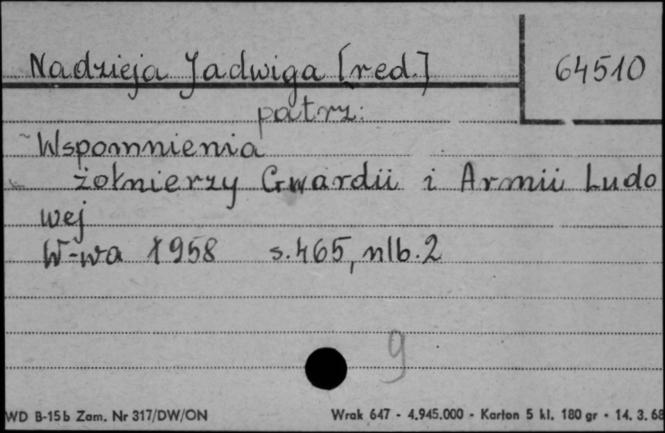 Nadzieja Jadwiga [red.]
64510
patrz:
Wspomnienia
żołnierzy Gwardii i Armii Ludo
wej
W-wa 1958 s.465, nlb.2
9
WD B-15b Zam. Nr 317/DW/ON
Wrak 647 - 4.945.000 - Karton 5 kl. 180 gr - 14. 3. 68